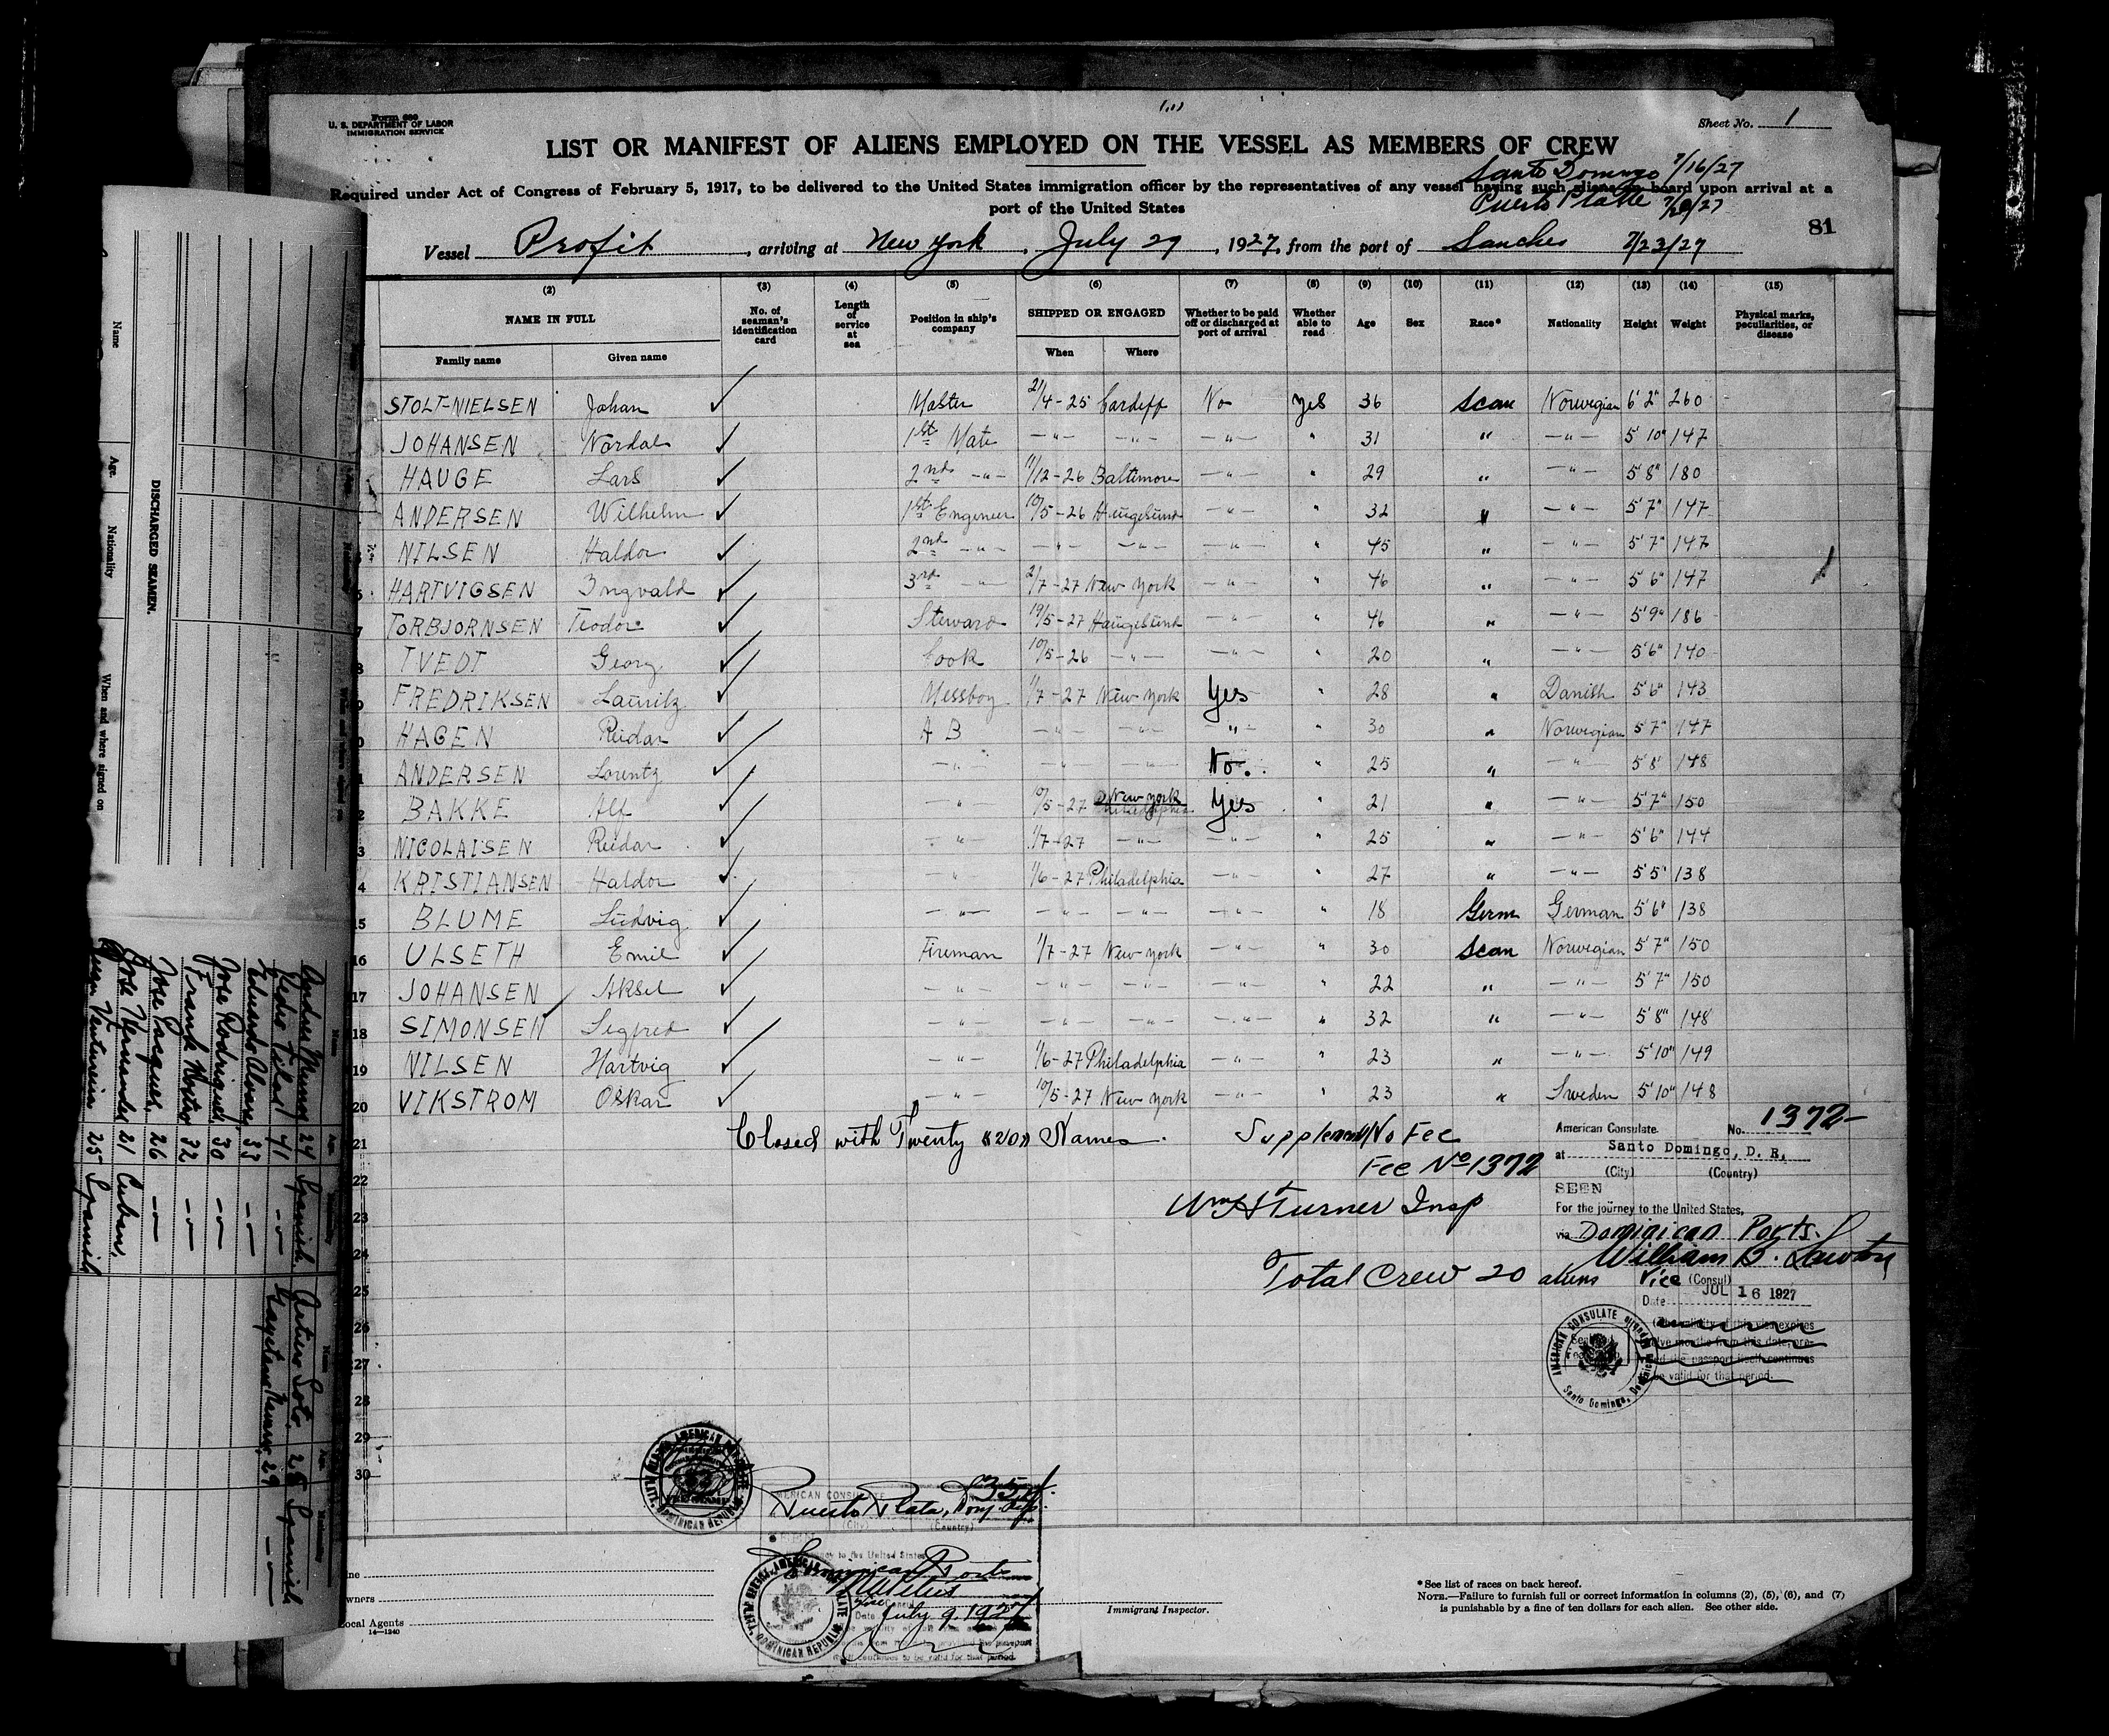 Form 689
U. S. DEPARTMENT OF LABOR
IMMIGRATION SERVICE
Sheet No. 1
LIST OR MANIFEST OF ALIENS EMPLOYED ON THE VESSEL AS MEMBERS OF CREW
Santo Domingo 7/16/27
Required under Act of Congress of February 5, 1917, to be delivered to the United States immigration officer by the representatives of any vessel having such aliens on board upon arrival at a
port of the United States
Puerto Platte 7/20/27
81
Vessel Profit, arriving at New York, July 29, 1927, from the port of Sanches 7/23/27
(2) (3) (4) (5) (6) (7) (8) (9) (10) (11) (12) (13) (14) (15)
NAME IN FULL No. of seaman's identification card Length of service at sea Position in ship's company SHIPPED OR ENGAGED Whether to be paid off or discharged at port of arrival Whether able to read Age Sex Race* Nationality Height Weight Physical marks, peculiarities, or disease
Family name Given name When Where
STOLT-NIELSEN Johan Master 21/4-25 Cardiff No Yes 36 Scan Norwegian 6'2" 260
JOHANSEN Nordal 1st Mate -"- -"- -"- " 31 " -"- 5'10" 147
HAUGE Lars 2nd -"- 11/12-26 Baltimore -"- " 29 " -"- 5'8" 180
ANDERSEN Wilhelm 1st Engeneer 10/5-26 Haugesund -"- " 32 " -"- 5'7" 147
NILSEN Haldor 2nd -"- -"- -"- -"- " 45 " -"- 5'7" 147
HARTVIGSEN Ingvald 3rd -"- 2/7-27 New York -"- " 46 " -"- 5'6" 147
7 TORBJORNSEN Teodor Steward 19/5-27 Haugesund -"- " 46 " -"- 5'9" 186
8 TVEDT Georg Cook 10/5-26 -"- -"- " 20 " -"- 5'6" 140
9 FREDRIKSEN Lauritz Messboy 1/7-27 New York Yes " 28 " Danish 5'6" 143
0 HAGEN Reidar A B -"- -"- -"- " 30 " Norwegian 5'7" 147
1 ANDERSEN Lorentz -"- -"- -"- No. " 25 " -"- 5'8" 148
2 BAKKE Alf -"- 10/5-27 New York Philadelphia Yes " 21 " -"- 5'7" 150
3 NICOLAISEN Reidar -"- 1/7-27 -"- -"- " 25 " -"- 5'6" 144
4 KRISTIANSEN Haldor -"- 1/6-27 Philadelphia -"- " 27 " -"- 5'5" 138
15 BLUME Ludvig -"- -"- -"- -"- " 18 Germ German 5'6" 138
16 ULSETH Emil Fireman 1/7-27 New York -"- " 30 Scan Norwegian 5'7" 150
17 JOHANSEN Aksel -"- -"- -"- -"- " 22 " -"- 5'7" 150
18 SIMONSEN Segfred -"- -"- -"- -"- " 32 " -"- 5'8" 148
19 NILSEN Hartvig -"- 1/6-27 Philadelphia -"- " 23 " -"- 5'10" 149
20 VIKSTROM Oskar -"- 10/5-27 New York -"- " 23 " Sweden 5'10" 148
21 Closed with Twenty "20" Names. Supplemental No Fee
Fee No 1372
22
23 Wm H Turner Insp
24
25 Total Crew 20 aliens
26
27
28
29
30
American Consulate No. 1372
at Santo Domingo, D. R.
(City) (Country)
SEEN
For the journey to the United States,
via Dominican Ports.
William B. Lawton
Vice (Consul)
Date JUL 16 1927
AMERICAN CONSULATE
Santo Domingo, Dominican Republic
AMERICAN CONSULATE
Puerto Plata, Dom. Rep.
(City) (Country)
Dominican Ports
Vice Consul
Date July 9, 1927
DOMINICAN REPUBLIC
Owners
Local Agents
14—1240
Immigrant Inspector.
*See list of races on back hereof.
NOTE.—Failure to furnish full or correct information in columns (2), (5), (6), and (7)
is punishable by a fine of ten dollars for each alien. See other side.
DISCHARGED SEAMEN.
Name Age. Nationality When and where signed on
24 Spanish Arturo Soto. 28 Spanish
41 -"- 29 -"-
Alvarez 33 -"-
Jose Rodriguez 30 -"-
Frank 32 -"-
Jose 26 -"-
Jose 21 Cuban.
25 Spanish